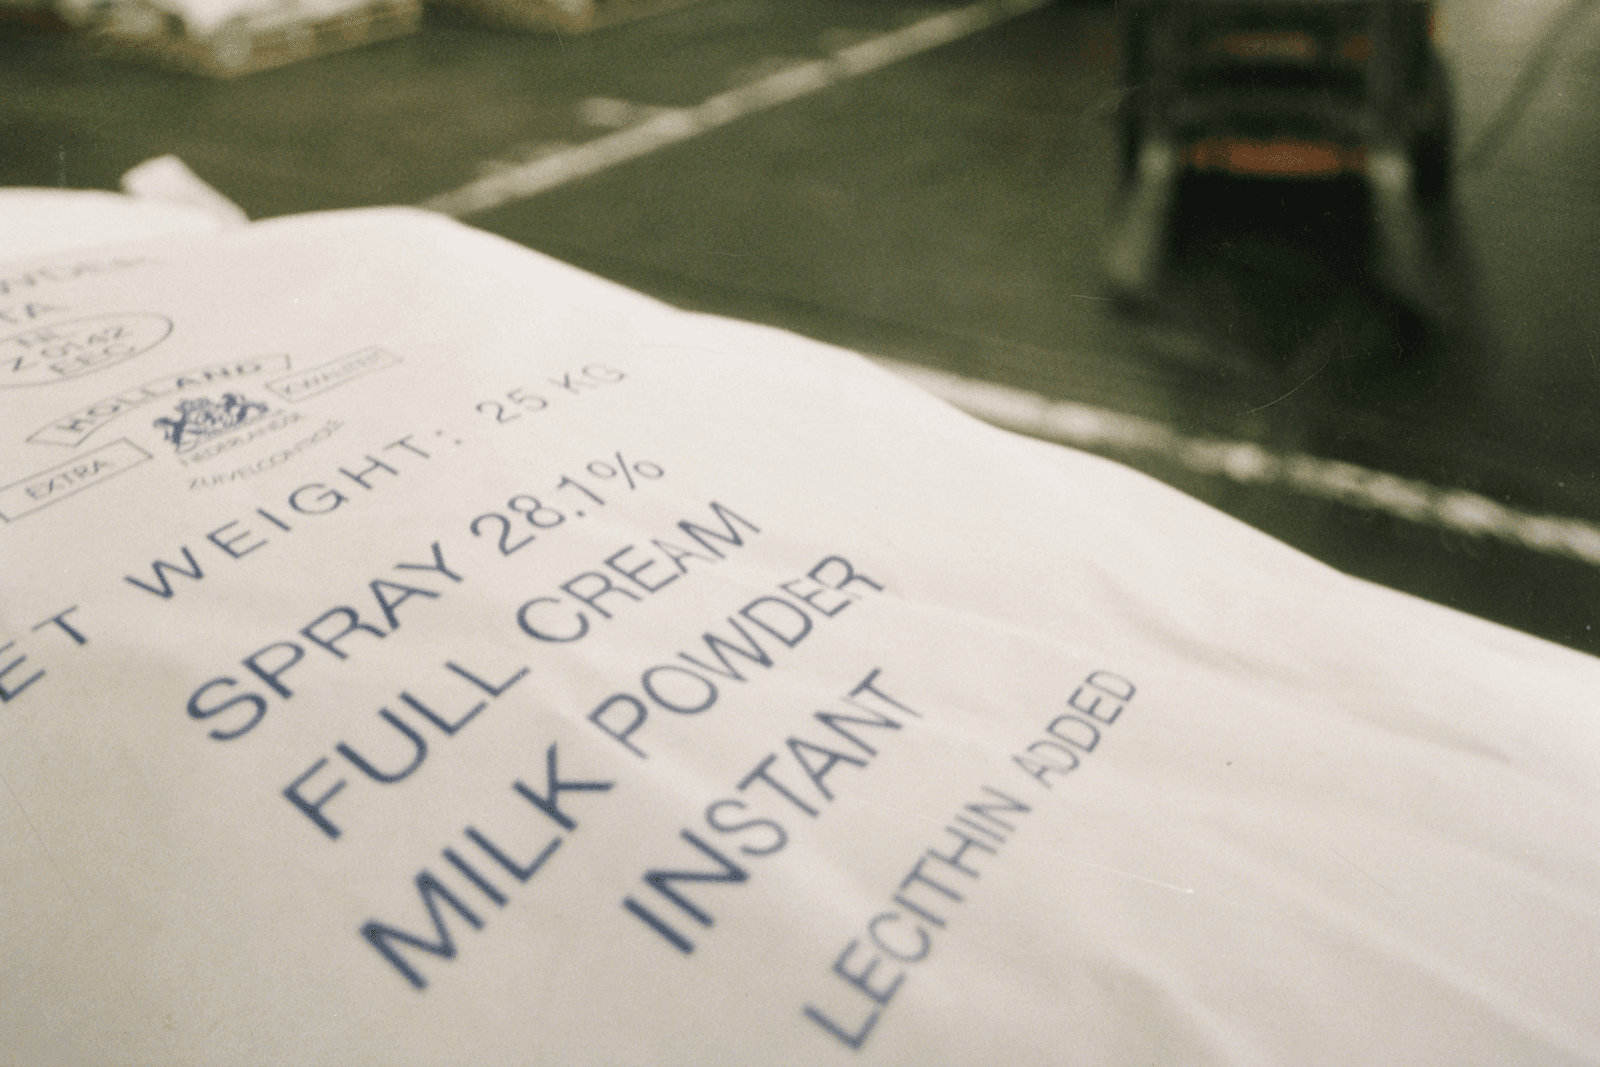 WDER
TA
NL
Z 0142
EEC
HOLLAND
EXTRA
KWALITEIT
NEDERLANDSE
ZUIVELCONTROLE
ET WEIGHT: 25 KG
SPRAY 28.1%
FULL CREAM
MILK POWDER
INSTANT
LECITHIN ADDED